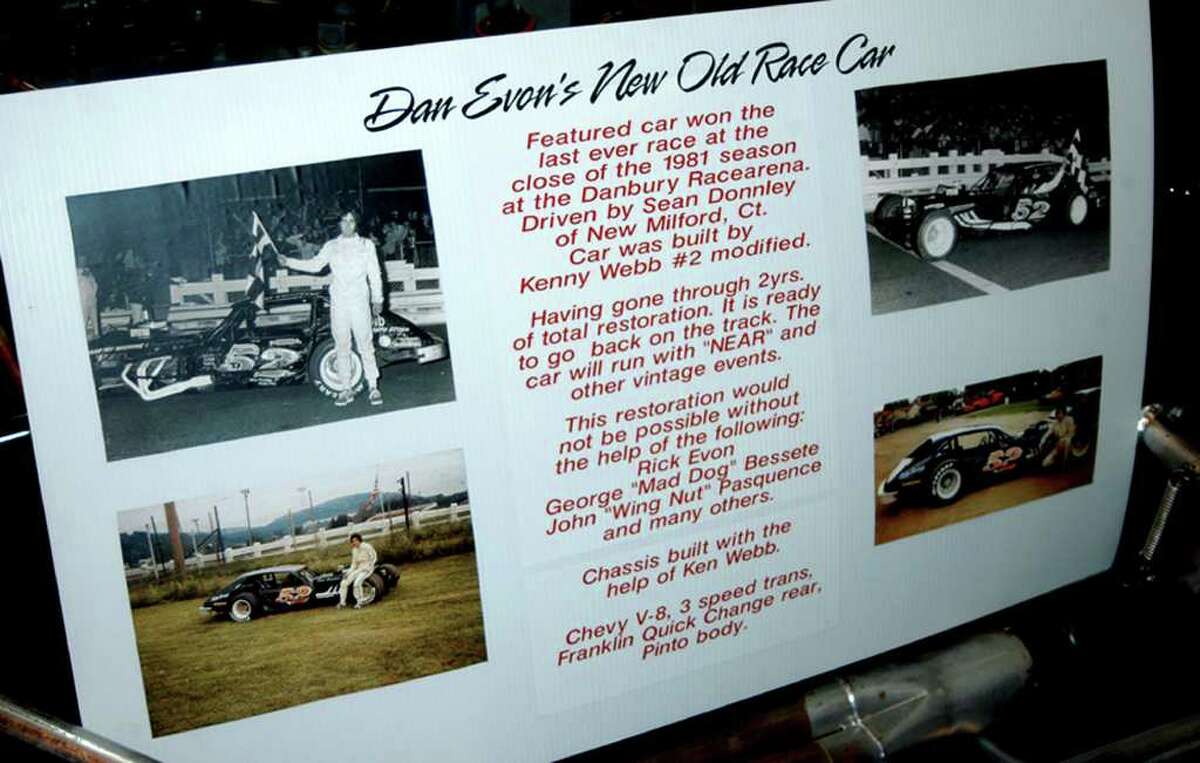 Dan Evon's New Old Race Car
Featured car won the
last ever race at the
close of the 1981 season
at the Danbury Racearena.
Driven by Sean Donnley
of New Milford, Ct.
Car was built by
Kenny Webb #2 modified.
Having gone through 2yrs.
of total restoration. It is ready
to go back on the track. The
car will run with "NEAR" and
other vintage events.
This restoration would
not be possible without
the help of the following:
Rick Evon
George "Mad Dog" Bessete
John "Wing Nut" Pasquence
and many others.
Chassis built with the
help of Ken Webb.
Chevy V-8, 3 speed trans,
Franklin Quick Change rear,
Pinto body.
52
52
52
52